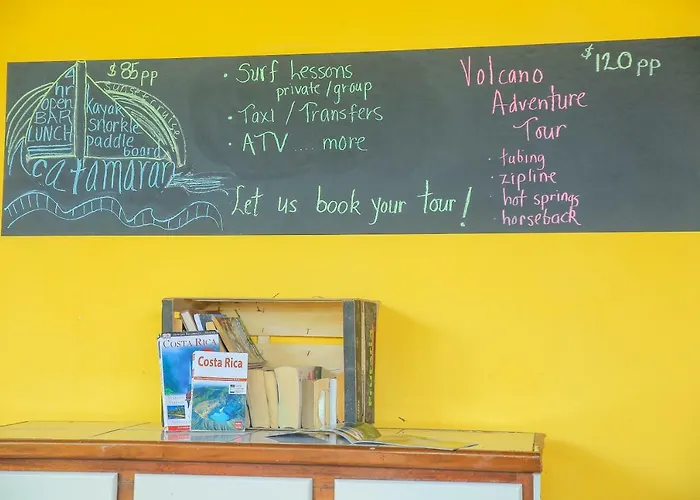 $85 pp
sunset cruise
4
hr
open
BAR
LUNCH
kayak
snorkle
paddle
board
catamaran
· Surf Lessons
private/group
· Taxi / Transfers
· ATV .... more
Let us book your tour!
$120 pp
Volcano
Adventure
Tour
· tubing
· zipline
· hot springs
· horseback
COSTA RICA
Costa Rica